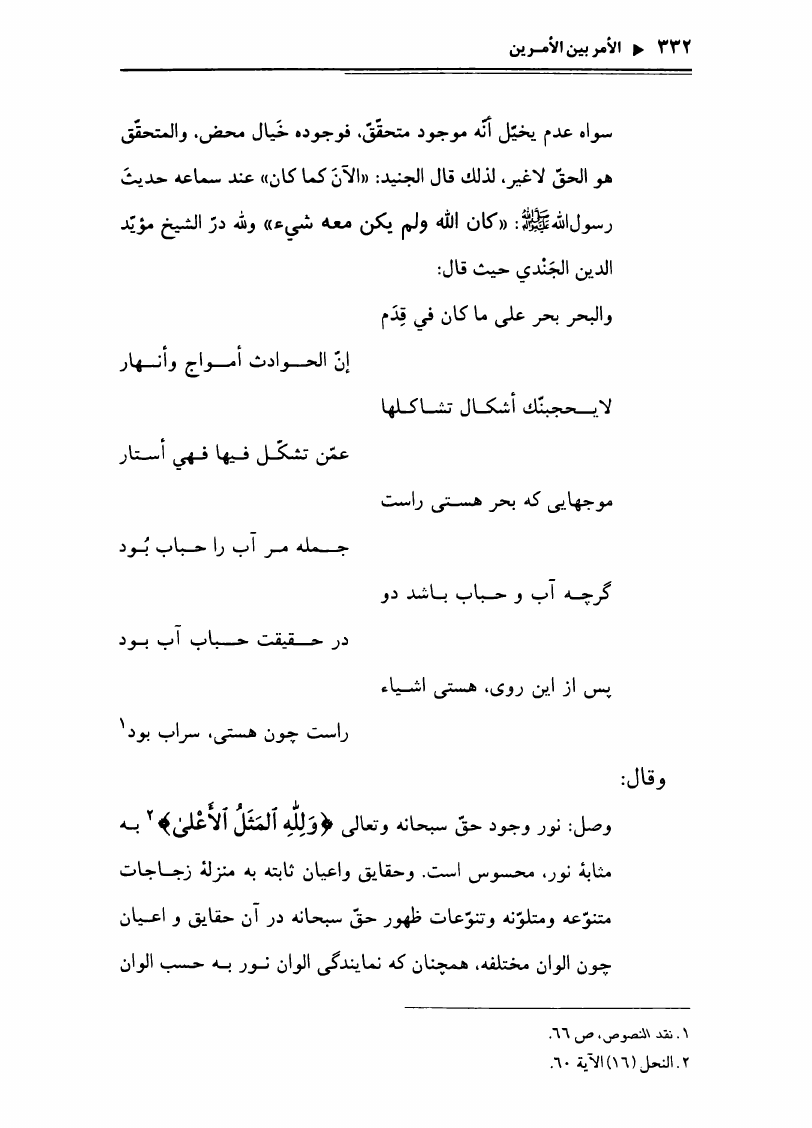 ٣٣٢ ▶ الأمر بين الأمـرين
سواه عدم يخيّل أنّه موجود متحقّق، فوجوده خَيال محض، والمتحقّق
هو الحقّ لاغير، لذلك قال الجنيد: «الآنَ كما كان» عند سماعه حديثَ
رسول‌الله ﷺ: «كان الله ولم يكن معه شيء» ولله درّ الشيخ مؤيّد
الدين الجَنْدي حيث قال:
والبحر بحر على ما كان في قِدَم
إنّ الحـوادث أمـواج وأنـهار
لايـحجبنّك أشكـال تشـاكـلها
عمّن تشكّـل فـيها فـهي أستـار
موجهایی که بحر هسـتی راست
جـمله مـر آب را حـباب بُـود
گرچـه آب و حـباب بـاشد دو
در حـقیقت حـباب آب بـود
پس از این روی، هستی اشـیاء
راست چون هستی، سراب بود١
وقال:
وصل: نور وجود حقّ سبحانه وتعالی ﴿وَلِلّٰهِ ٱلمَثَلُ ٱلأَعْلىٰ﴾٢ بـه
مثابهٔ نور، محسوس است. وحقایق واعیان ثابته به منزلهٔ زجـاجات
متنوّعه ومتلوّنه وتنوّعات ظهور حقّ سبحانه در آن حقایق و اعـیان
چون الوان مختلفه، همچنان که نمایندگی الوان نـور بـه حسب الوان
١. نقد النصوص، ص ٦٦.
٢. النحل (١٦) الآية ٦٠.